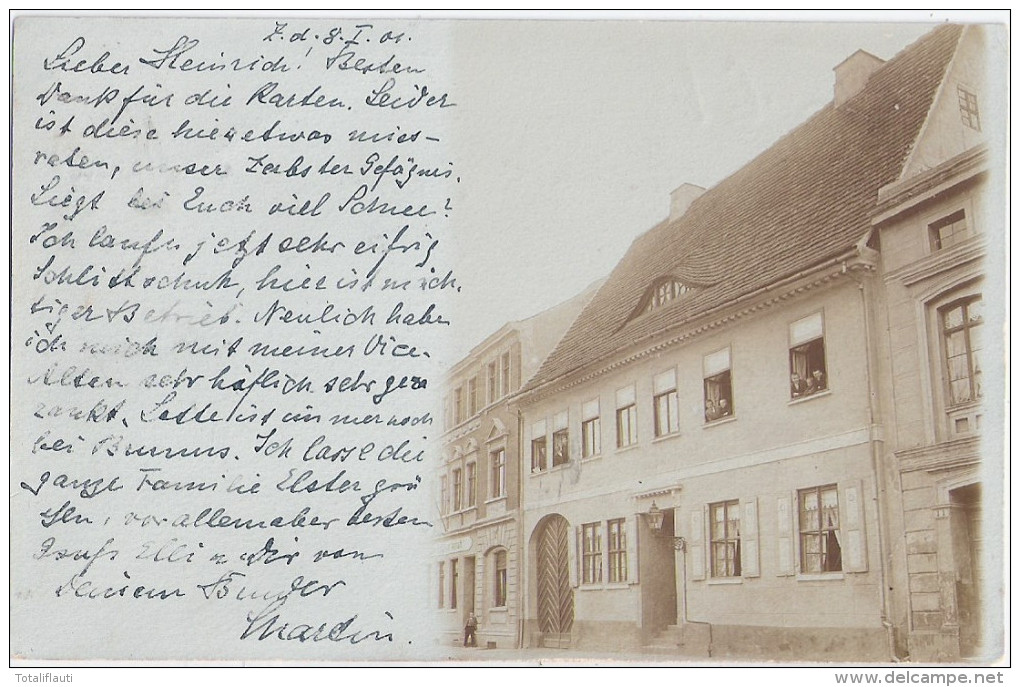 Z. d. 8. I. 01.
Lieber Heinrich! Besten
Dank für die Karten. Leider
ist diese hier etwas miss-
raten, unser Zerbster Gefägnis.
Liegt bei Euch viel Schnee?
Ich laufe jetzt sehr eifrig
Schlittschuh, hier ist mäch-
tiger Betrieb. Neulich habe
ich mich mit meiner Vice-
Alten sehr höflich sehr gezankt.
ist immer noch
bei Brumus. Ich lasse die
ganze Familie Elster grü
sen, vor allem aber besten
Gruss Elli u. Dir von
Deinem Bruder
Martin.
Totaliflauti
www.delcampe.net